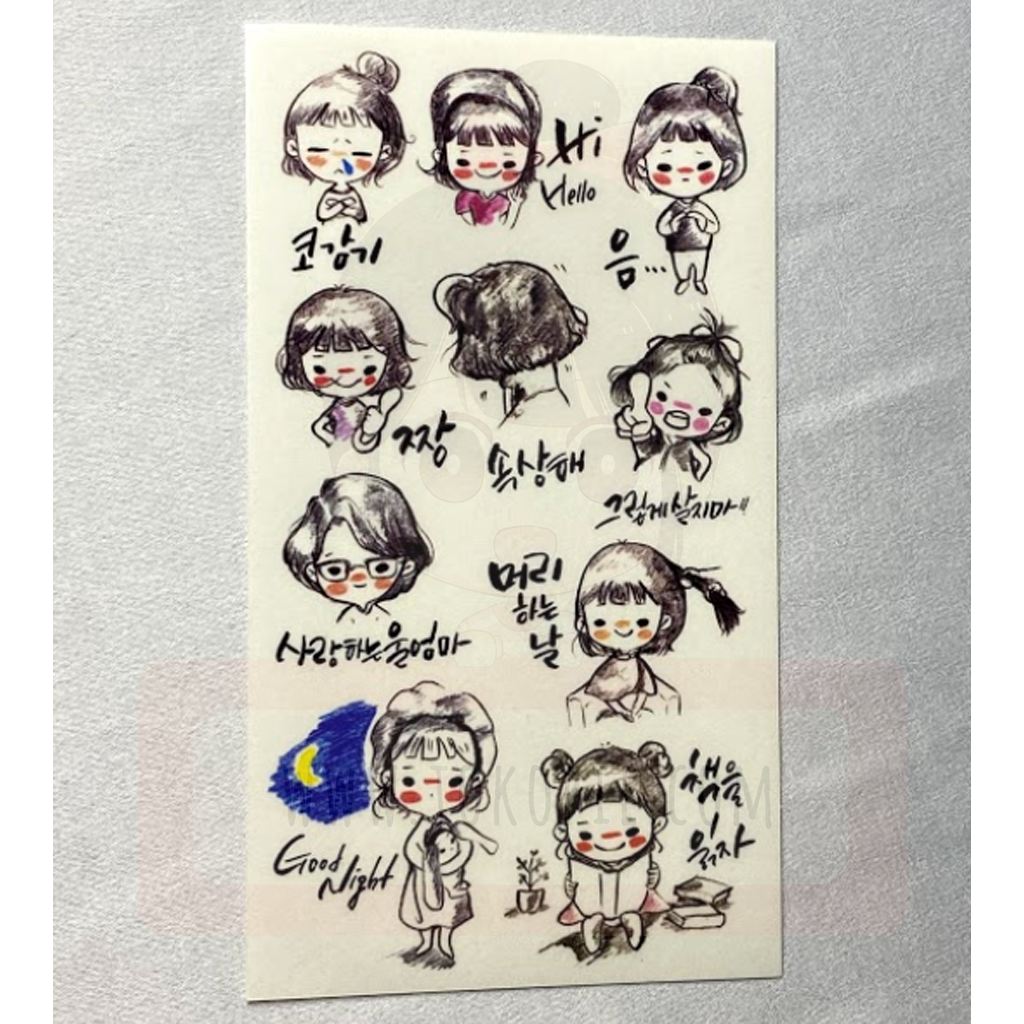 Hi
Hello
코감기
음...
짱
속상해
그렇게살지마"
사랑하는울엄마
머리
하는
날
Good
Night
책을
읽자